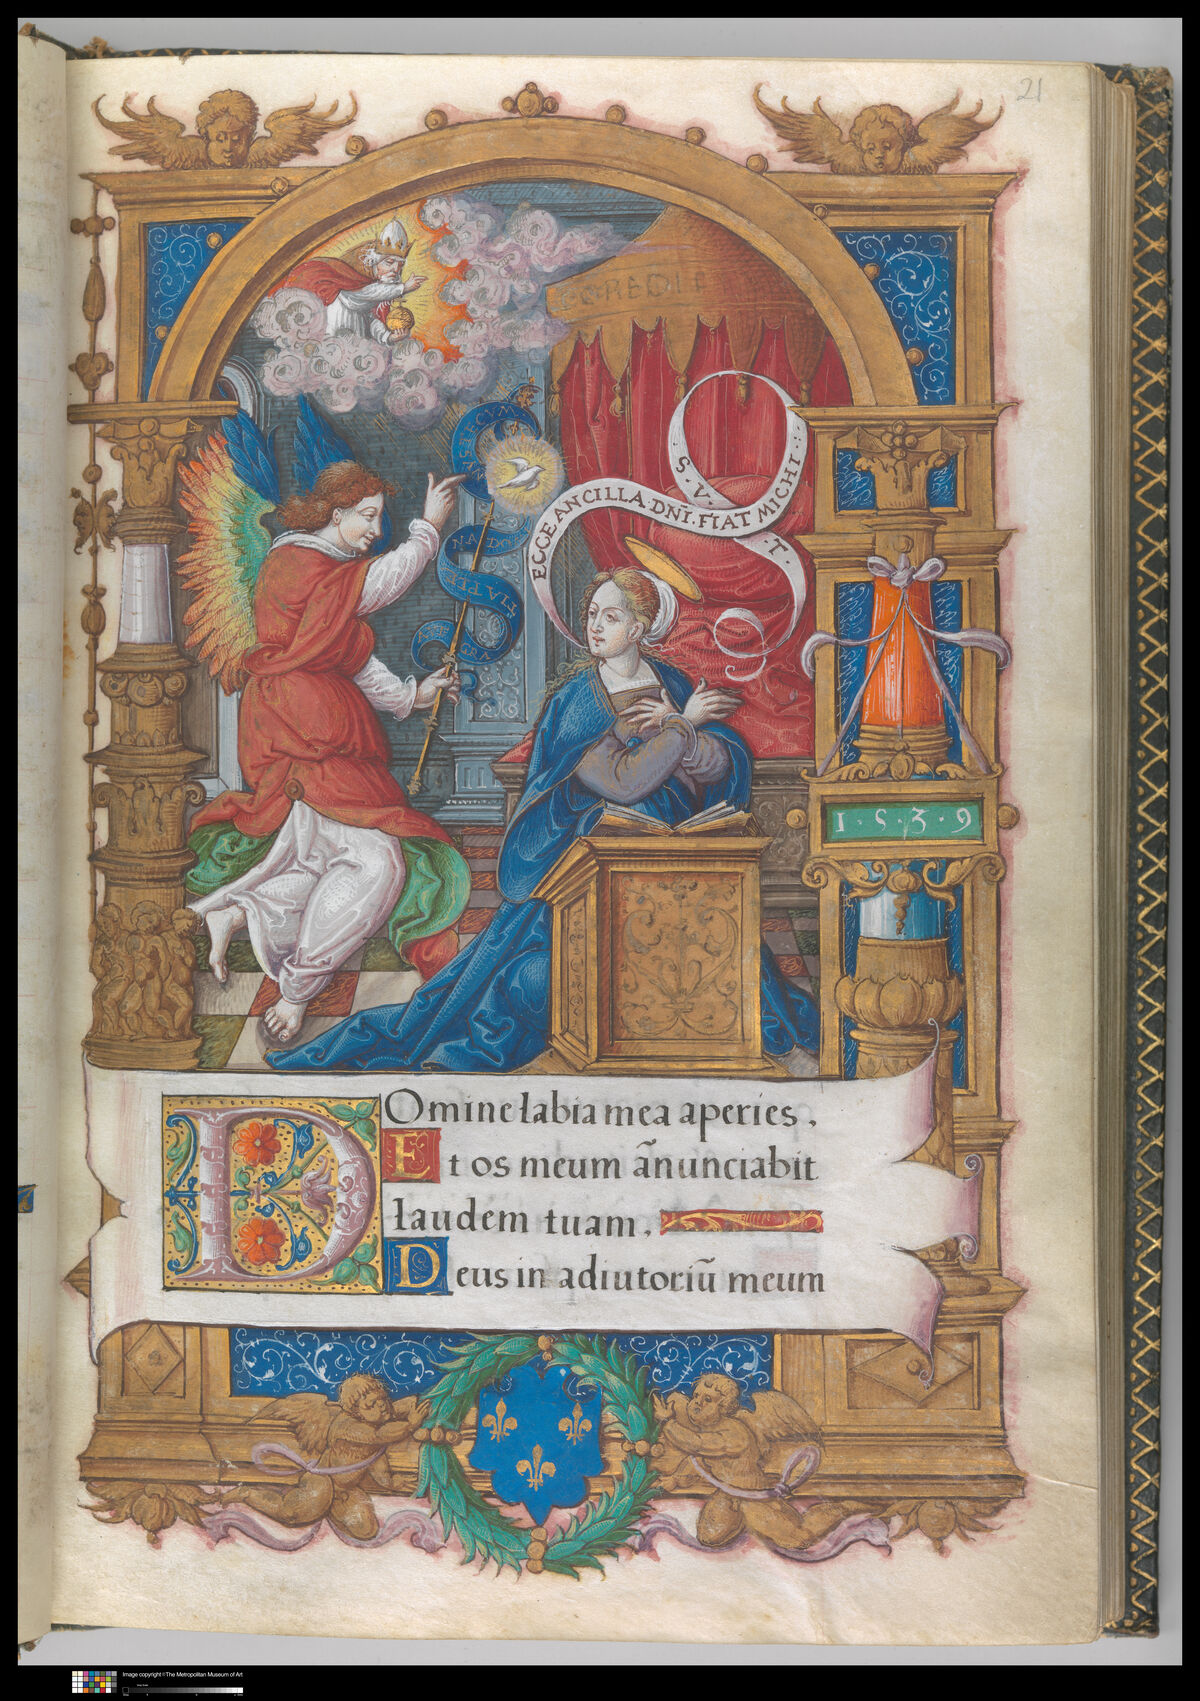 21
ECCE ANCILLA · DNI · FIAT MICHI ·
S · V ·
· T ·
1 · 5 · 3 · 9
Domine labia mea aperies,
Et os meum añunciabit
laudem tuam,
Deus in adiutoriũ meum
Image copyright ©The Metropolitan Museum of Art